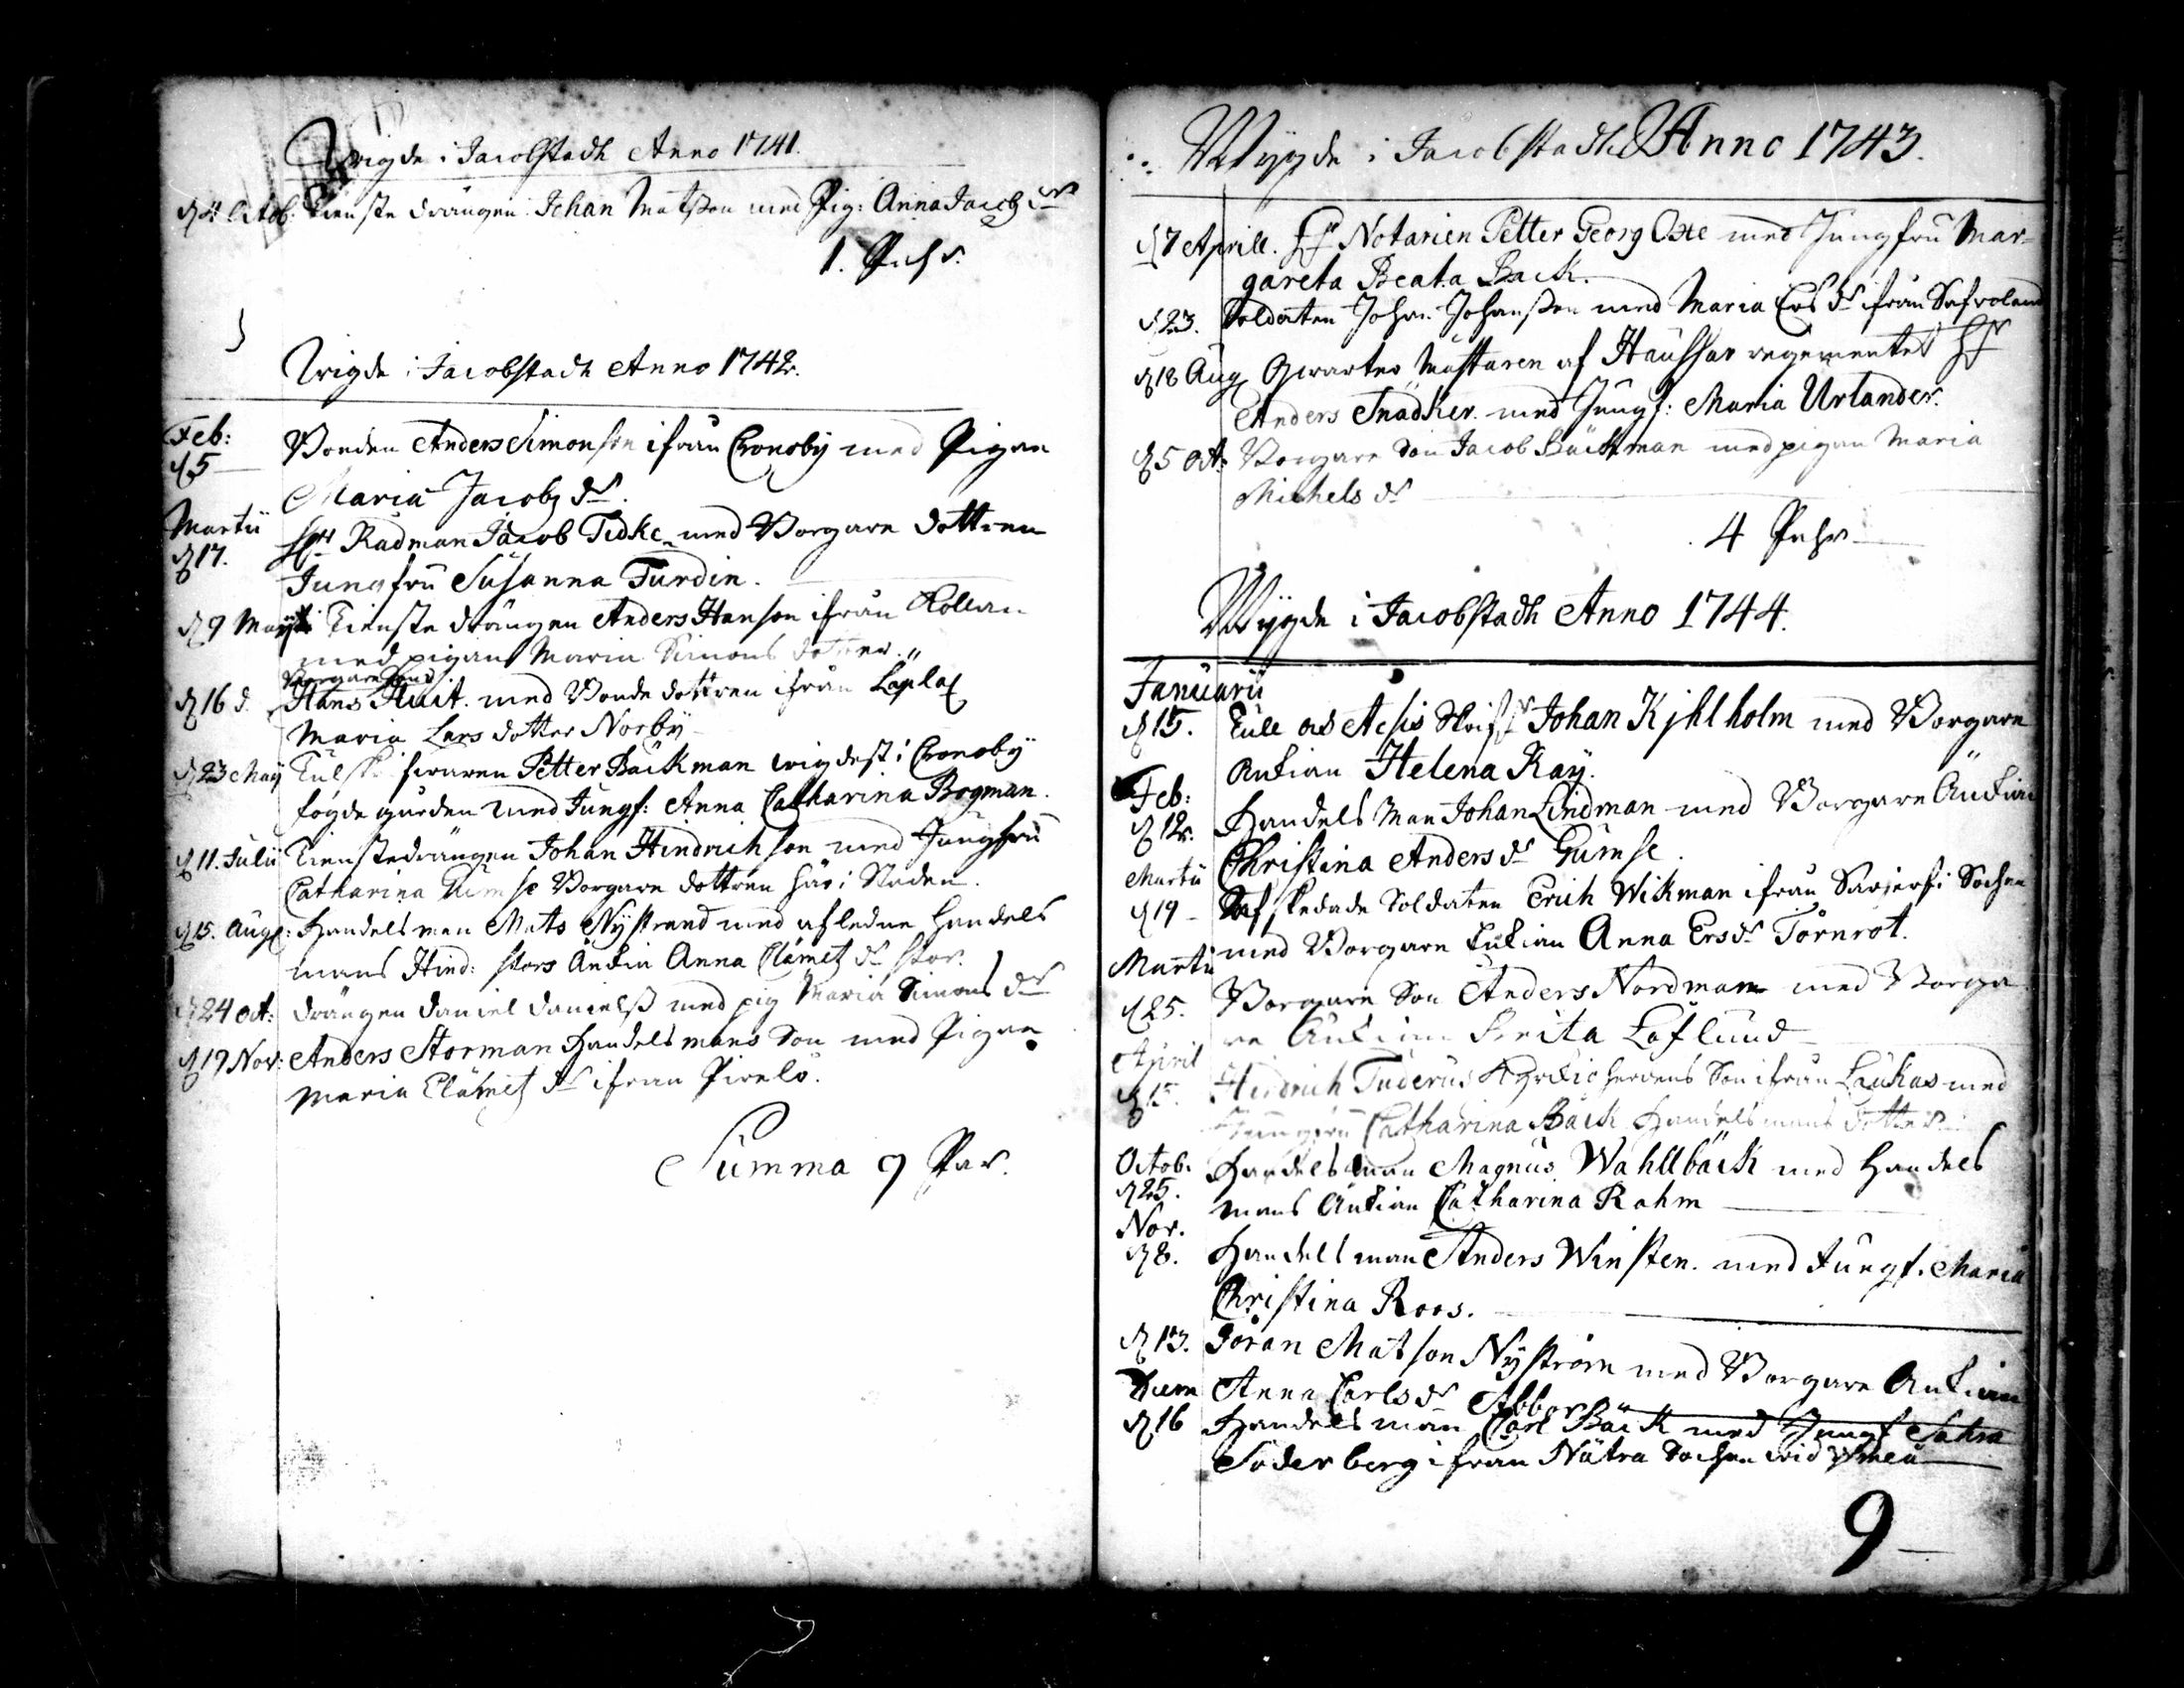 Wigde i Jacobstadh Anno 1741.
d 4 Octob. Tienste drängen Johan Matsson med Pig: Anna Jacobs dr
1. Pahr.
Wigde i Jacobstadh Anno 1742.
Feb:
d 5 Bonden Anders Simonson ifrån Cronoby med Pigan
Maria Jacobs dr.
Martii
d 17. Hr Rådman Jacob Tidke med Borgare dottren
Jungfru Susanna Turdin.
d 9 Maji Tienste drängen Anders Hanson ifrån
med pigan Maria Simons dotter.
Borgare Son
d 16 d. Hans Huit. med Bonde dottren ifrån Laplax
Maria Lars dotter Norby
d 23 May Petter Bäckman wigdest i Cronoby
fogde gården med Jungf: Anna Catharina Bogman.
d 11. Julii Tienstedrängen Johan Hindrichson med Jungfru
Catharina Gumse Borgare dottren här i Staden.
d 15. Aug: Handelsman Mats Nystrand med afledne Handels
mans Hind: stors Änkia Anna Clämets dr stor.
d 24 oct: drängen Daniel Danielss med pig Maria Simons dr
d 19 Nov: Anders Storman Handelsmans Son med Pigan
Maria Clämets dr ifrån Pirelö.
Summa 9 Par.
Wygde i Jacobstadh Anno 1743.
d 7 Aprill. Hr Notarien Petter Georg Oxe med Jungfru Mar-
gareta Beata Back.
d 23. Soldaten Johan Johansson med Maria Ers dr ifrån
d 18 Aug Qwarter Mästaren af Haussar regementet Hr
Anders Snädker med Jungf: Maria Urlander.
d 5 oct: Borgare Son Jacob Bäckman med pigan Maria
Michels dr
4 Pahr
Wygde i Jacobstadh Anno 1744.
Januarii
d 15. Johan Kjhlholm med Borgare
Änkian Helena Kay.
Feb:
d 12. Handels Man Johan Lindman med Borgare Änkian
Christina Anders dr Gumse.
Martii
d 19 Afskedade Soldaten Erich Wikman ifrån Sochen
med Borgare Änkian Anna Ers dr Törnrot.
Martii
d 25. Borgare Son Anders Nordman med Borga
re Änkian Brita Löflund
April
d 15. Hindrich Tuderus Kyrkioherdens Son ifrån Laukas med
Jungfru Catharina Bäck Handelsmans dotter
Octob.
d 25. Handelsman Magnus Wahllbäck med Handels
mans Änkian Catharina Rahm
Nov.
d 8. Handelsman Anders Winsten. med Jungf. Maria
Christina Roos.
d 13. Jöran Matson Nyström med Borgare Änkian
Anna Carls dr Abbor
d 16 Handelsman Carl Bäck med Jungf Sahra
Söderberg ifrån Nätra Sochen wid Umeå
9